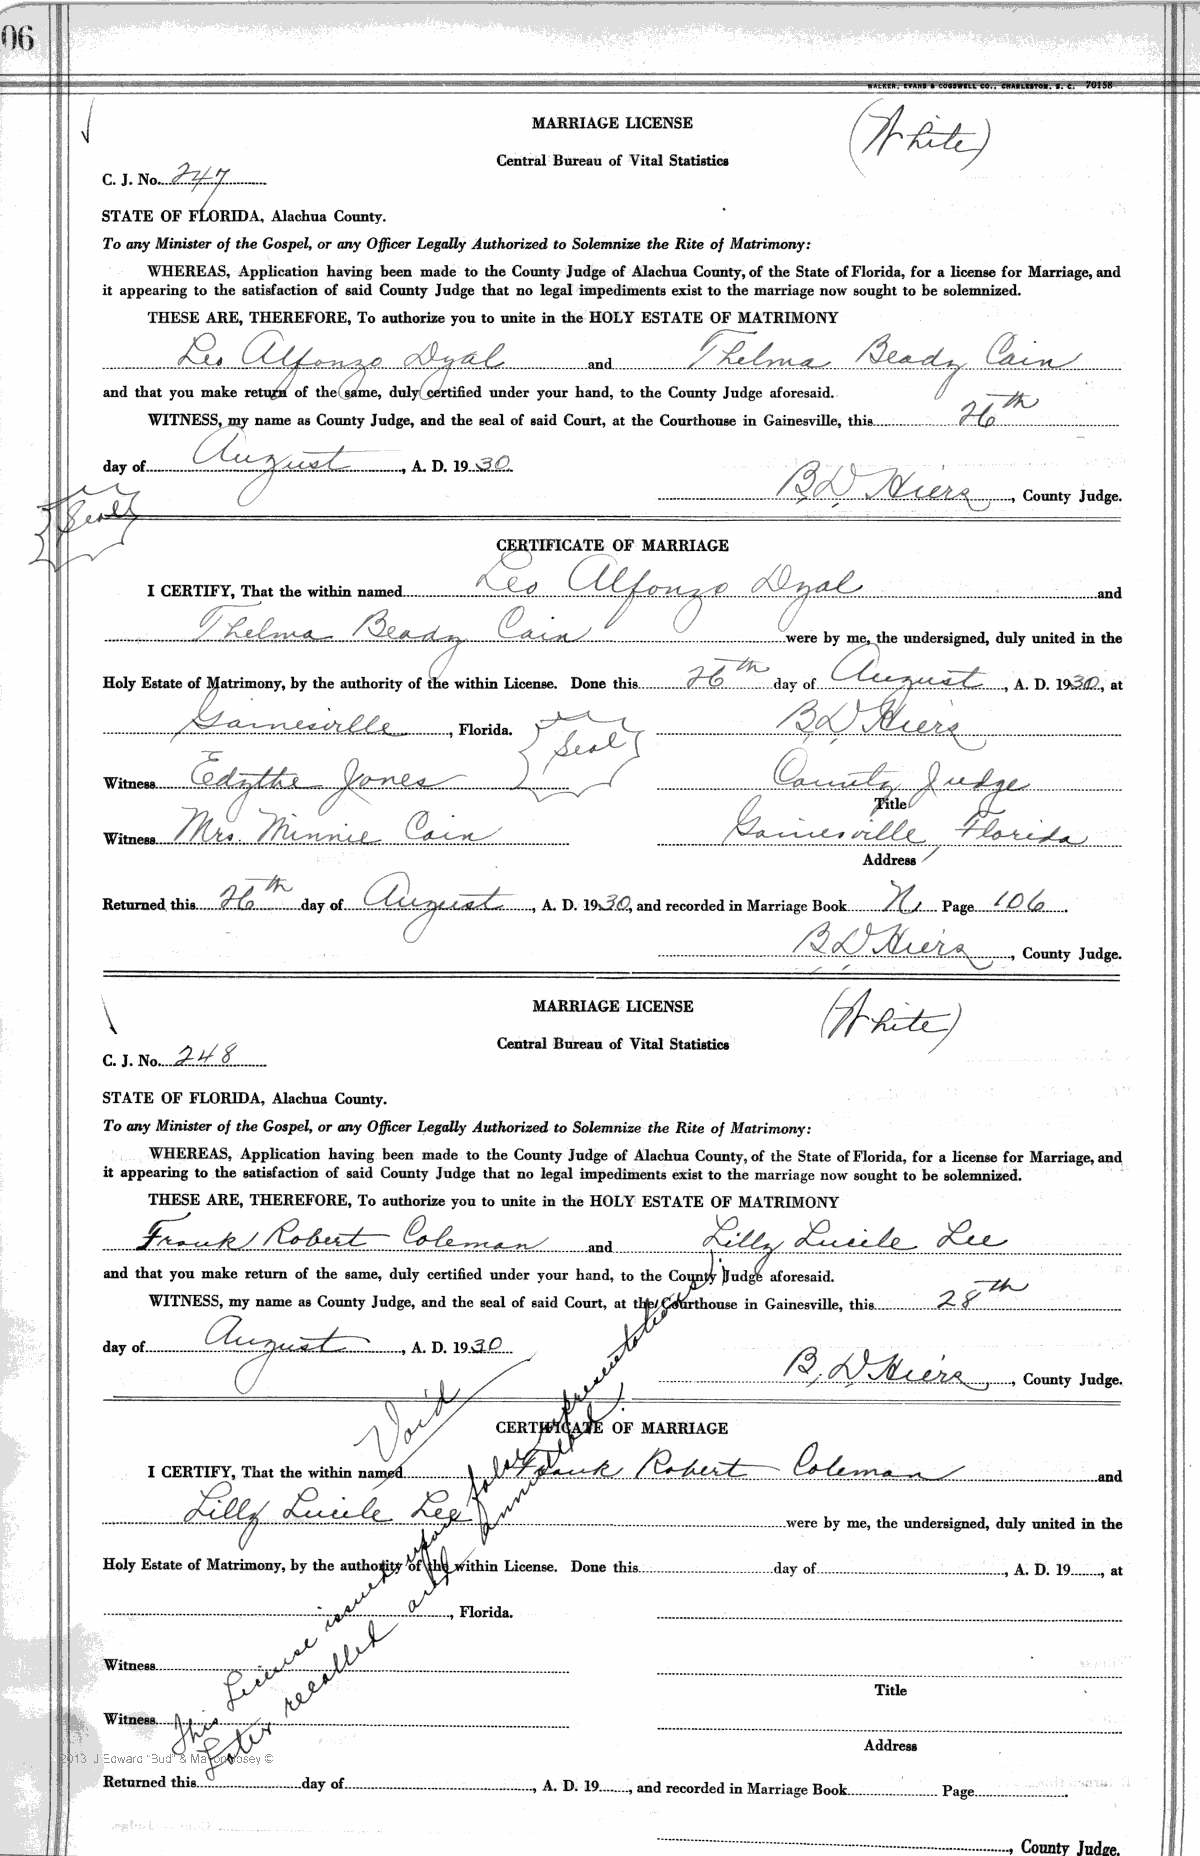 06
WALKER, EVANS & COGSWELL CO., CHARLESTON, S. C. 70158
MARRIAGE LICENSE
(White)
Central Bureau of Vital Statistics
C. J. No. 247
STATE OF FLORIDA, Alachua County.
To any Minister of the Gospel, or any Officer Legally Authorized to Solemnize the Rite of Matrimony:
WHEREAS, Application having been made to the County Judge of Alachua County, of the State of Florida, for a license for Marriage, and
it appearing to the satisfaction of said County Judge that no legal impediments exist to the marriage now sought to be solemnized.
THESE ARE, THEREFORE, To authorize you to unite in the HOLY ESTATE OF MATRIMONY
Leo Alfonzo Dyal and Thelma Beady Cain
and that you make return of the same, duly certified under your hand, to the County Judge aforesaid.
WITNESS, my name as County Judge, and the seal of said Court, at the Courthouse in Gainesville, this 26th
day of August, A. D. 1930.
B. D. Hiers, County Judge.
Seal
CERTIFICATE OF MARRIAGE
I CERTIFY, That the within named Leo Alfonzo Dyal and
Thelma Beady Cain were by me, the undersigned, duly united in the
Holy Estate of Matrimony, by the authority of the within License. Done this 26th day of August, A. D. 1930, at
Gainesville, Florida. B. D. Hiers
Seal
Witness Edythe Jones County Judge
Title
Witness Mrs. Minnie Cain Gainesville, Florida
Address
Returned this 26th day of August, A. D. 1930, and recorded in Marriage Book N Page 106.
B. D. Hiers, County Judge.
MARRIAGE LICENSE
(White)
Central Bureau of Vital Statistics
C. J. No. 248
STATE OF FLORIDA, Alachua County.
To any Minister of the Gospel, or any Officer Legally Authorized to Solemnize the Rite of Matrimony:
WHEREAS, Application having been made to the County Judge of Alachua County, of the State of Florida, for a license for Marriage, and
it appearing to the satisfaction of said County Judge that no legal impediments exist to the marriage now sought to be solemnized.
THESE ARE, THEREFORE, To authorize you to unite in the HOLY ESTATE OF MATRIMONY
Frank Robert Coleman and Lilly Lucile Lee
and that you make return of the same, duly certified under your hand, to the County Judge aforesaid.
WITNESS, my name as County Judge, and the seal of said Court, at the Courthouse in Gainesville, this 28th
day of August, A. D. 1930
B. D. Hiers, County Judge.
Void
This License issued upon false representations;
Later recalled and annulled.
CERTIFICATE OF MARRIAGE
I CERTIFY, That the within named Frank Robert Coleman and
Lilly Lucile Lee were by me, the undersigned, duly united in the
Holy Estate of Matrimony, by the authority of the within License. Done this day of , A. D. 19 , at
, Florida.
Witness
Title
Witness
Address
2013 J Edward "Bud" & Ma
Returned this day of , A. D. 19 , and recorded in Marriage Book Page .
, County Judge.